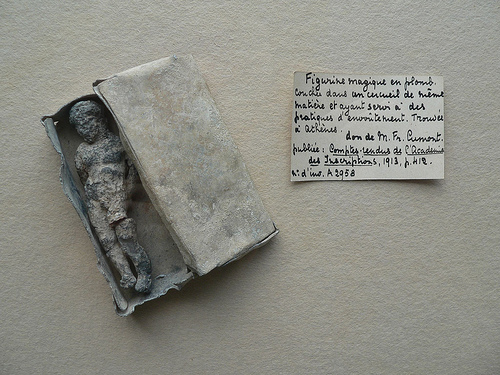 Figurine magique en plomb.
couchée dans un cercueil de même
matière et ayant servi à des
pratiques d'envoûtement. Trouvée
à Athènes. don de M. Fr. Cumont.
publiée: Comptes-rendus de l'Académie
des Inscriptions, 1913, p. 412.
n° d'inv. A 2958